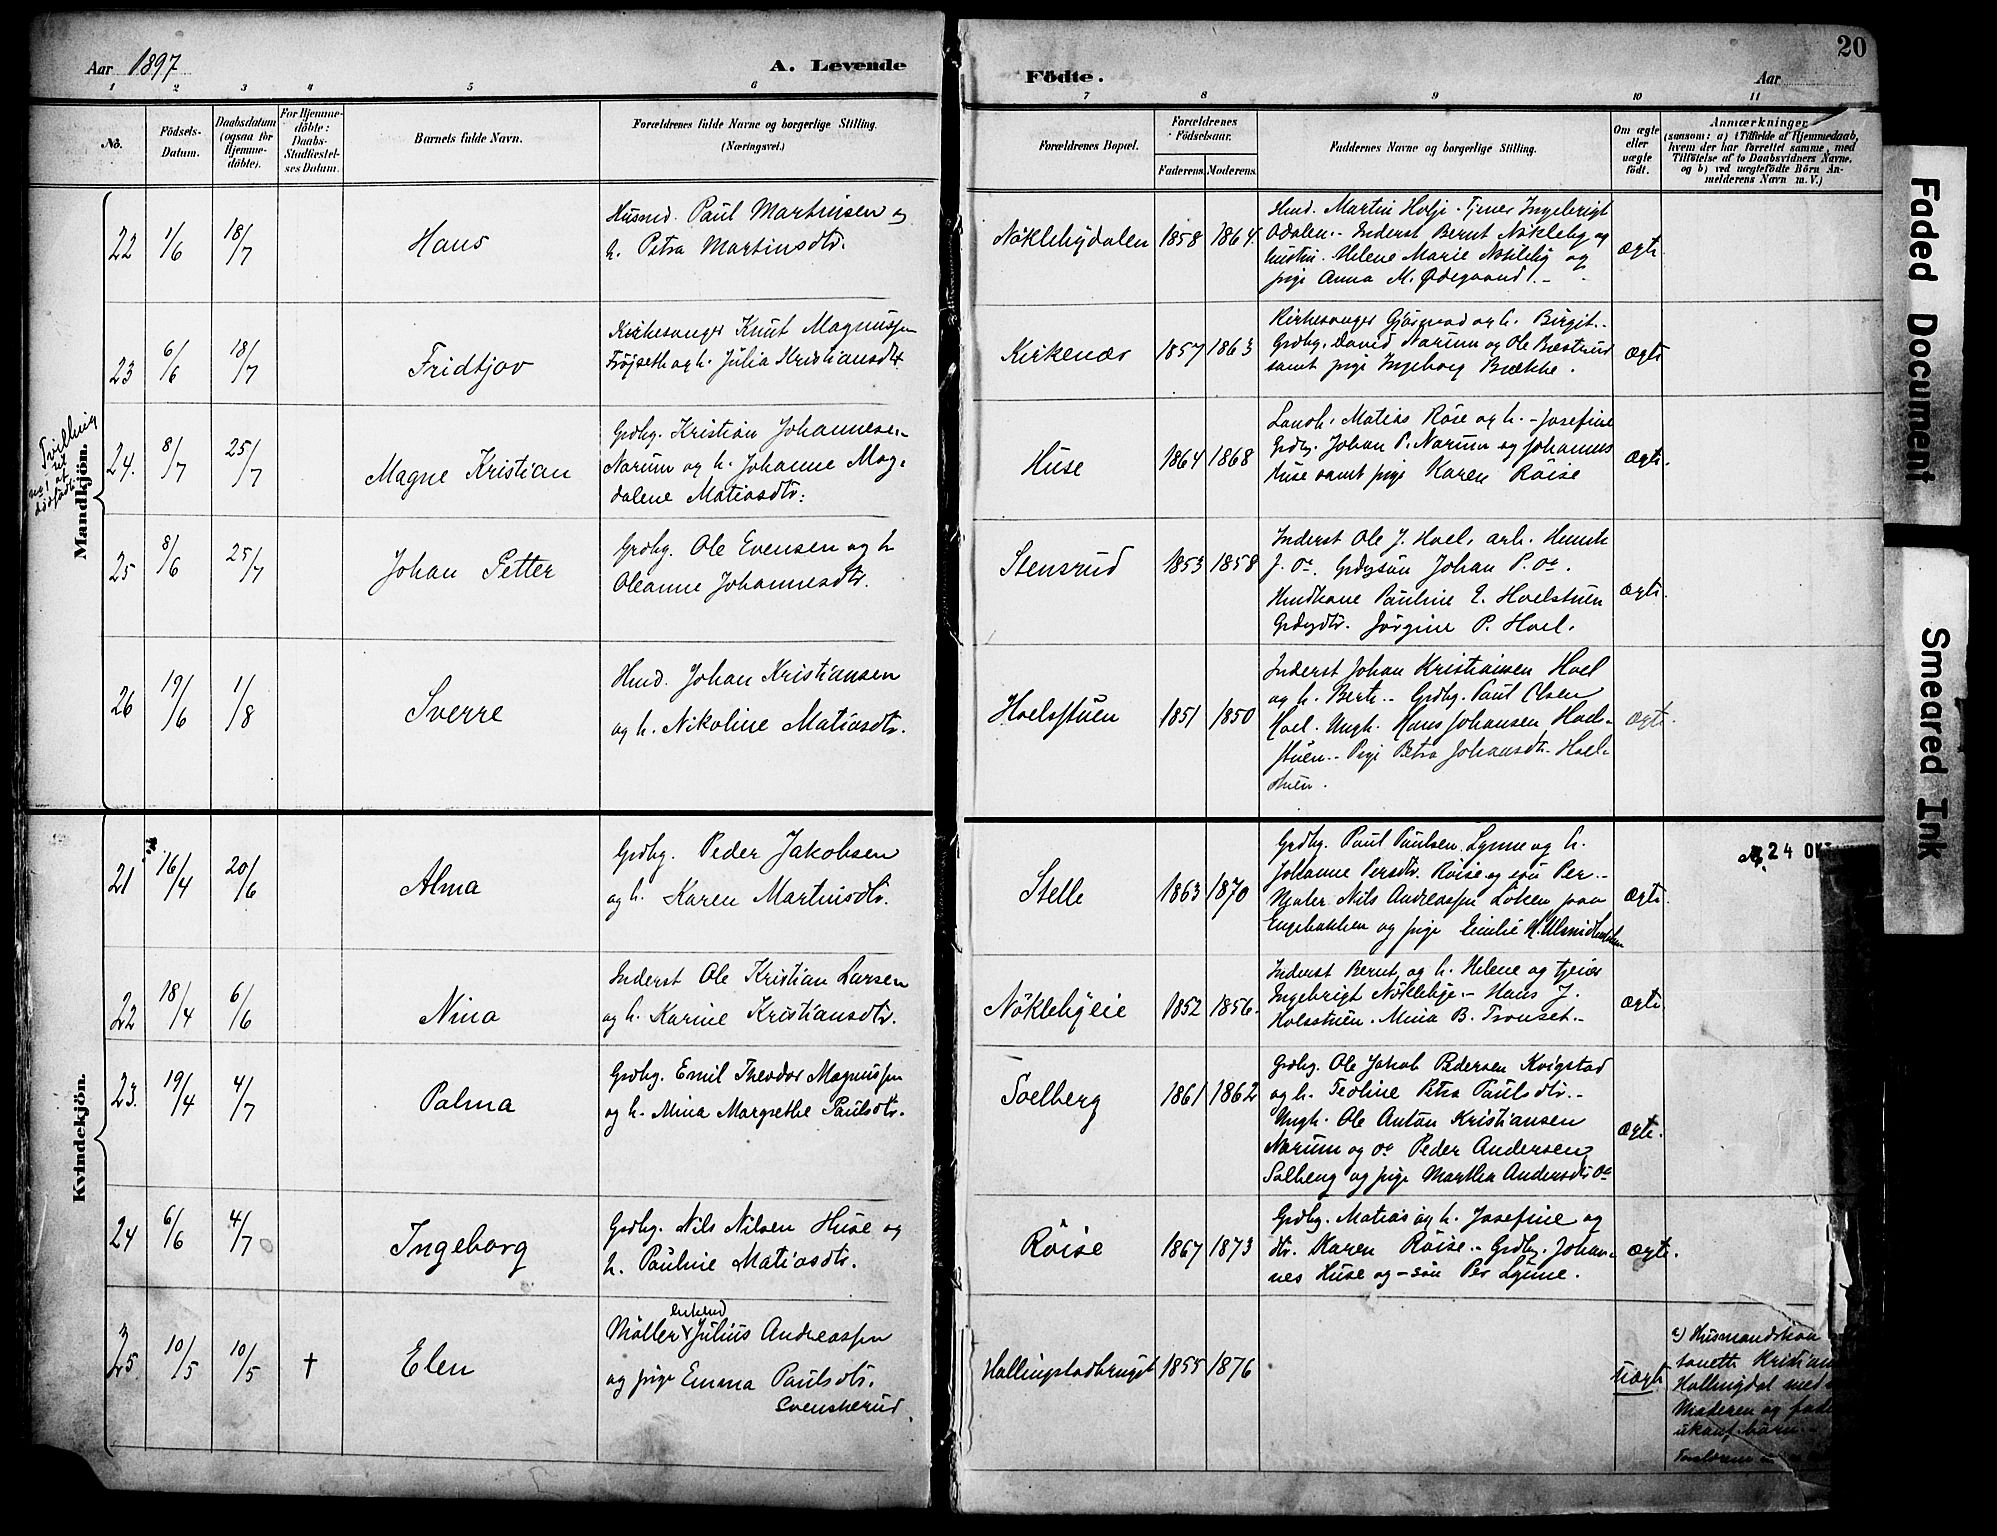 Aar 1897
A. Levende
Födte.
Aar
20
1 2 3 4 5 6 7 8 9 10 11
No.
Födsels-
Datum.
Daabsdatum
(ogsaa for
Hjemme-
döbte).
For Hjemme-
döbte:
Daabs-
Stadfæstel-
ses Datum.
Barnets fulde Navn.
Forældrenes fulde Navne og borgerlige Stilling.
(Næringsvei.)
Forældrenes Bopæl.
Forældrenes
Födselsaar.
Faderens. Moderens.
Faddernes Navne og borgerlige Stilling.
Om ægte
eller
uægte
födt.
Anmærkninger
(saasom: a) i Tilfælde af Hjemmedaab,
hvem der har forrettet samme, med
Tilföielse af to Daabsvidners Navne.
og b) ved uægtefödte Börn An-
melderens Navn m. V.)
Mandkjön.
22 1/6 18/7 Hans
Husmd. Paul Martinsen og
h. Petra Martinsdtr.
Nöklebydalen 1858 1864.
Hmd. Martin Holje. Tjener Ingebrigt
Odalen.- Inderst Bernt Nökleby og
hustru. Helene Marie Nökleby og
pige Anna M. Ødegaard.-
ægte
23 6/6 18/7 Fridtjov
Kirkesanger Knut Magnussen
Tröjseth og h. Julia Kristiansdtr.
Kirkenær 1857 1863
Kirkesanger Gjörstad og h. Birgit..
Grdbg. David Narum og Ole Bæstrud
samt pige Ingeborg Brække.
ægte
Tvilling
til
no 1 af
dödfödte
24. 8/7 25/7 Magne Kristian
Grdbg. Kristian Johannesen
Narum og h. Johanne Mag-
dalene Matiasdtr.
Huse 1864 1868
Landh. Matias Röse og h. - Josefine
Grdbg. Johan P. Narum og Johannes
Huse samt pige Karen Röise
ægte.
25 8/6 25/7 Johan Petter
Grdbg. Ole Evensen og h
Oleanne Johannesdtr.
Stensrud 1853 1858
Inderst Ole J. Hoel, arb. Henrik
J. oe. Grdbgsön Johan P. oe.
Hmdkone Pauline E. Hoelstuen
Grdbgdtr. Jörgine P. Hoel.
ægte.
26 19/6 1/8 Sverre
Hmd. Johan Kristiansen
og h. Nikoline Matiasdtr.
Hoelsstuen 1851 1850
Inderst Johan Kristiansen Hoel
og h. Berte.. Grdbg. Paul Olsen
Hoel. Ungk. Hans Johansen Hoel-
stuen.. Pige Petra Johansdtr. Hoel-
stuen.
ægte.
Kvindekjön.
21 16/4 20/6 Alma
Grdbg. Peder Jakobsen
og h. Karen Martinsdtr.
Stelle 1863 1870
Grdbg. Paul Paulsen Lynne og h.
Johanne Persdtr. Röise og sön Per..
Nils Andreassen Löken paa
Engebakken og pige Emilie
ægte.
24 OKT
22 18/4 6/6 Nina
Inderst Ole Kristian Larsen
og h. Karine Kristiansdtr.
Nöklebyeie 1852 1856.
Inderst Bernt og h. Helene og tjener
Ingebrigt Nöklebye.- Hans J.
Holsstuen. Mina B. Tronset.-
ægte
23. 19/4 4/7 Palma
Grdbg. Emil Theodor Magnussen
og h. Mina Margrethe Paulsdtr.
Soelberg 1861 1862
Grdbg. Ole Jakob Pedersen Kvigstad
og h. Teoline Petra Paulsdtr.-
Ungk. Ole Anton Kristiansen
Narum og oe Peder Andersen
Solberg og pige Marthea Andersdtr oe
ægte.
24 6/6 4/7 Ingeborg
Grdbg. Nils Nilsen Huse og
h. Pauline Matiasdtr.
Röise 1867 1873
Grdbg. Matias og h. Josefine og
dtr. Karen Röise.- Grdbg. Johan-
nes Huse og - sön Per Lynne.
ægte.
25. 10/5 10/5 † Elen
enkemd
Møller Julius Andreassen
og pige Emma Paulsdtr.
Svenskerud.
Hallingstadbruget 1855 1876
uægte
a) Husmandskon
Kristian
Hallingdal med
Moderen og fade
ukonf. barn.-
Faded Document
Smeared Ink